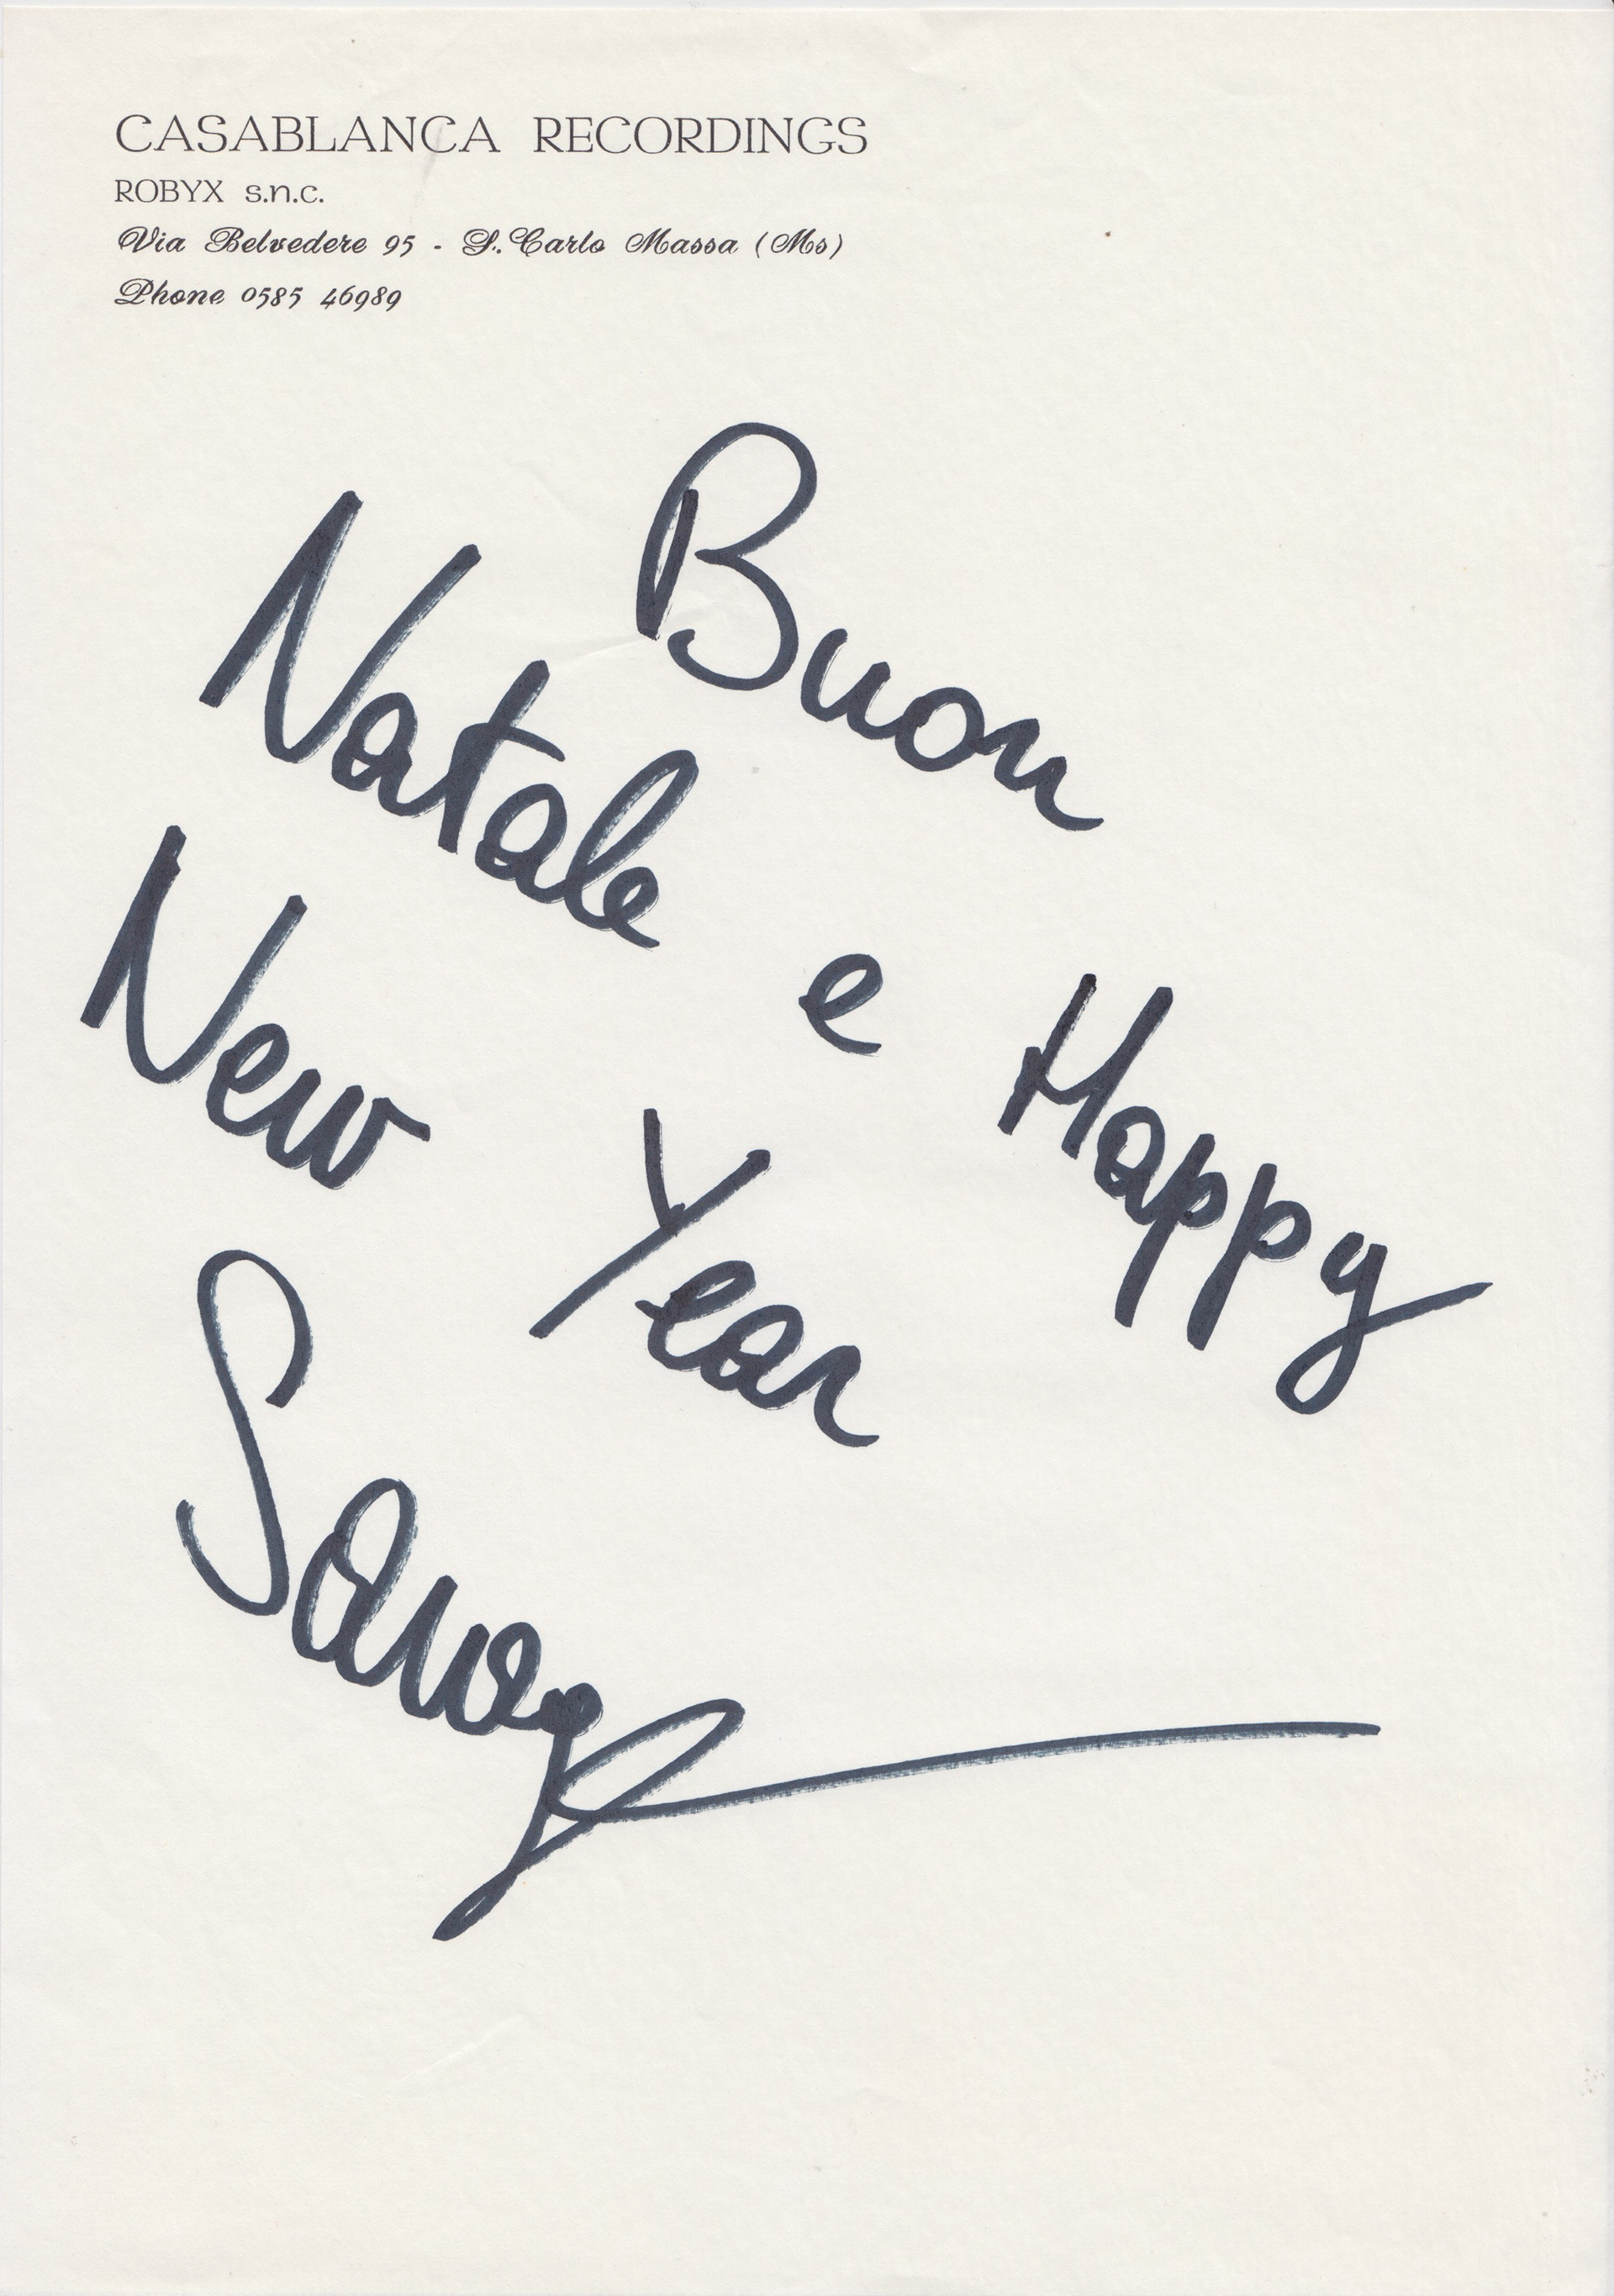 CASABLANCA RECORDINGS
ROBYX s.n.c.
Via Belvedere 95 - S. Carlo Massa (Ms)
Phone 0585 46989
Buon
Natale e Happy
New Year
Savage